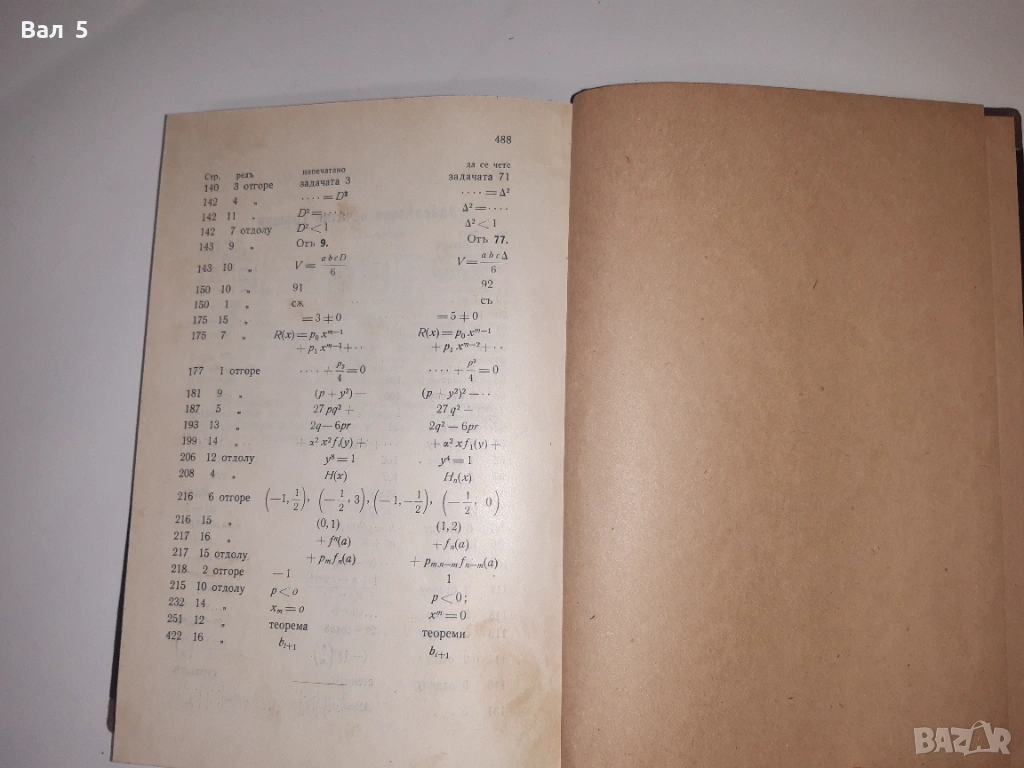 Вал 5
488
Стр. редъ напечатано да се чете
140 3 отгоре задачата 3 задачата 71
142 4 „ ···· = D³ ···· = Δ²
142 11 „ D² = ···· Δ² = ····
142 7 отдолу D² < 1 Δ² < 1
143 9 „ Отъ 9. Отъ 77.
143 10 „ V = abcD/6 V = abcΔ/6
150 10 „ 91 92
150 1 „ сѫ съ
175 15 „ = 3 ≠ 0 = 5 ≠ 0
175 7 „ R(x) = p₀ xᵐ⁻¹ R(x) = p₀ xᵐ⁻¹
+ p₁ xᵐ⁻¹ + ·· + p₁ xᵐ⁻² + ··
177 1 отгоре ···· + p₂/4 = 0 ···· + p²/4 = 0
181 9 „ (p + y²) − (p + y²)² − ··
187 5 „ 27 pq² + 27 q² −
193 13 „ 2q − 6pr 2q² − 6pr
199 14 „ + α² x² f(y) + + α² x f₁(y) +
206 12 отдолу y³ = 1 y⁴ = 1
208 4 „ H(x) Hₙ(x)
216 6 отгоре (−1, 1/2), (−1/2, 3), (−1, −1/2), (−1/2, 0)
216 15 „ (0, 1) (1, 2)
217 16 „ + fⁿ(a) + fₙ(a)
217 15 отдолу + pₘ fₙ(a) + pₘ.ₙ₋ₘ fₙ₋ₘ(a)
218 2 отгоре −1 1
215 10 отдолу p < o p < 0;
232 14 „ xₘ = o xᵐ = 0
251 12 „ теорема теореми
422 16 „ bᵢ₊₁ bᵢ₊₁
BAZAR